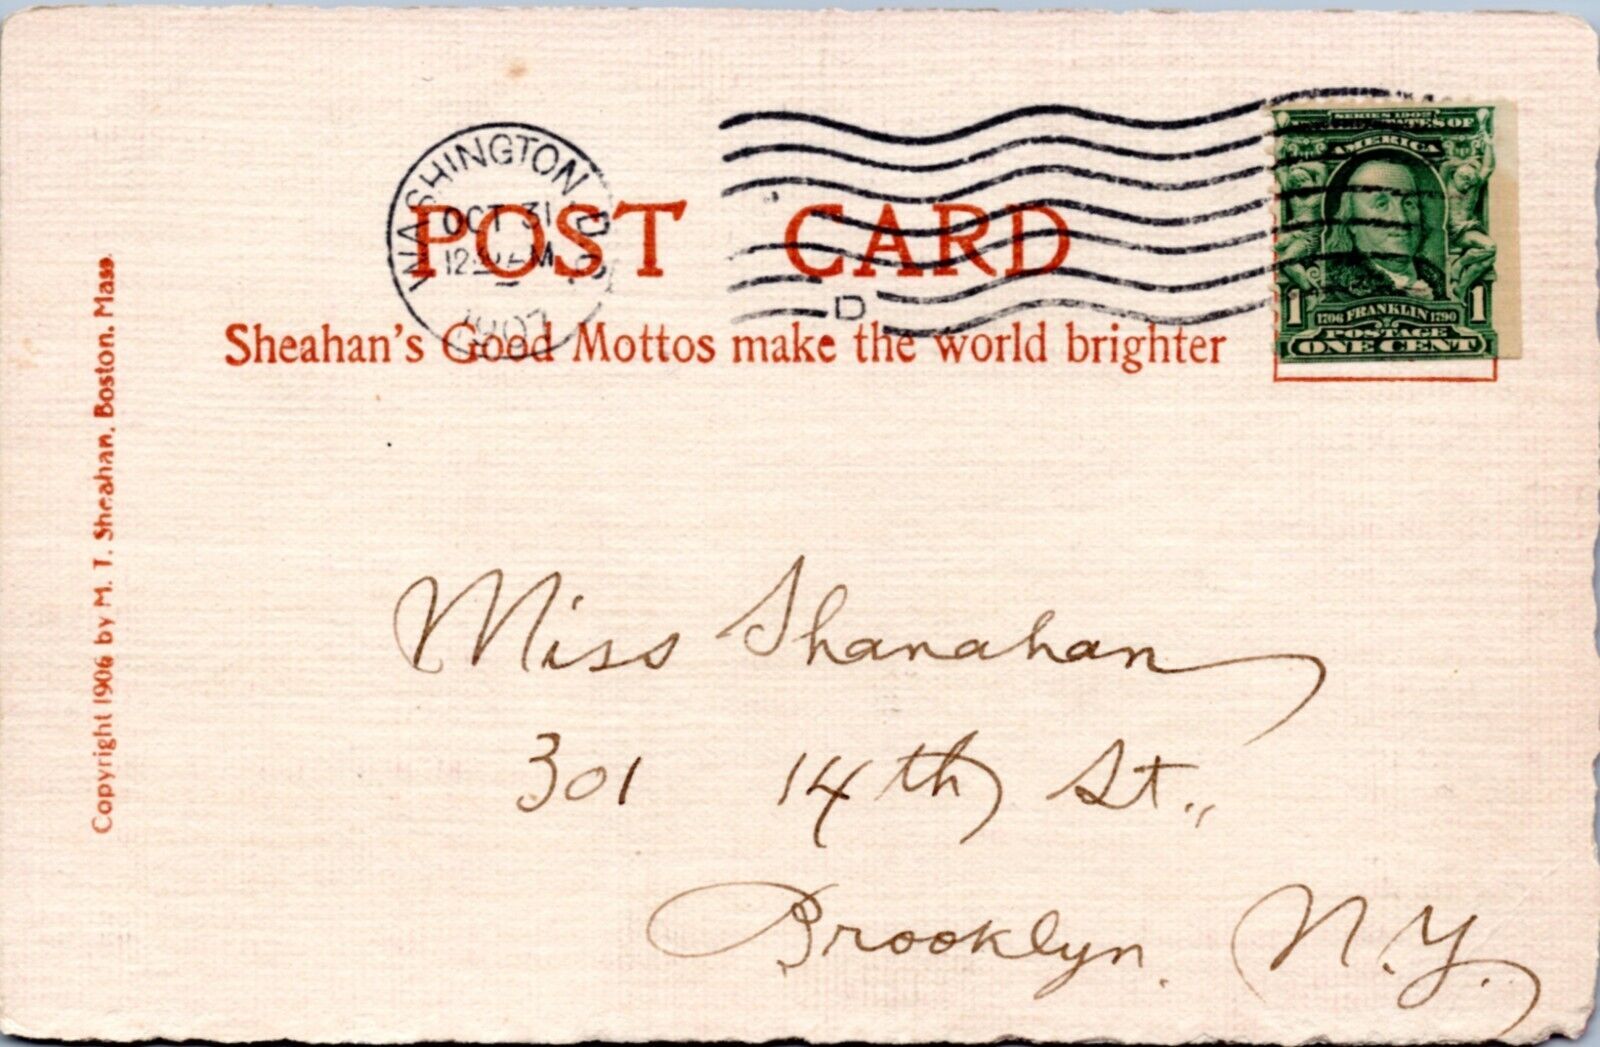 WASHINGTON, D.C.
OCT 31
1907
D
SERIES 1902
UNITED STATES OF
AMERICA
1 1706 FRANKLIN 1790 1
POSTAGE
ONE CENT
POST CARD
Sheahan's Good Mottos make the world brighter
Copyright 1906 by M. T. Sheahan, Boston, Mass.
Miss Shanahan
301 14th St.,
Brooklyn. N.Y.